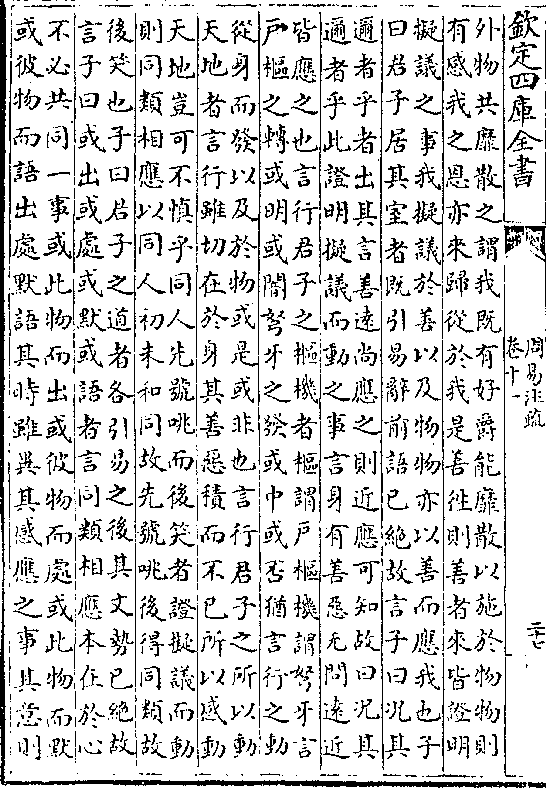 欽定四庫全書
周易注疏
卷十一
二十七
外物共靡散之謂我既有好爵能靡散以施於物物則
有感我之恩亦來歸從於我是善往則善者來皆證明
擬議之事我擬議於善以及物物亦以善而應我也子
曰君子居其室者既引易辭前語已絶故言子曰况其
邇者乎者出其言善遠尚應之則近應可知故曰况其
邇者乎此證明擬議而動之事言身有善惡无問遠近
皆應之也言行君子之樞機者樞謂戸樞機謂弩牙言
戸樞之轉或明或闇弩牙之發或中或否猶言行之動
從身而發以及於物或是或非也言行君子之所以動
天地者言行雖切在於身其善惡積而不已所以感動
天地豈可不慎乎同人先號咷而後笑者證擬議而動
則同類相應以同人初未和同故先號咷後得同類故
後笑也子曰君子之道者各引易之後其文勢已絶故
言子曰或出或處或默或語者言同類相應本在於心
不必共同一事或此物而出或彼物而處或此物而默
或彼物而語出處默語其時雖異其感應之事其意則